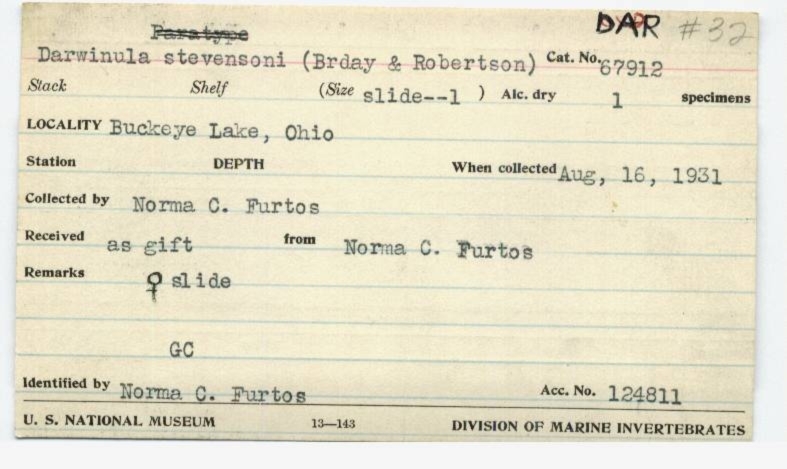 Paratype DAR #32
Darwinula stevensoni (Brday & Robertson) Cat. No. 67912
Stack Shelf (Size slide--1 ) Alc. dry 1 specimens
LOCALITY Buckeye Lake, Ohio
Station DEPTH When collected Aug, 16, 1931
Collected by Norma C. Furtos
Received as gift from Norma C. Furtos
Remarks ♀ slide
GC
Identified by Norma C. Furtos Acc. No. 124811
U. S. NATIONAL MUSEUM 13—143 DIVISION OF MARINE INVERTEBRATES